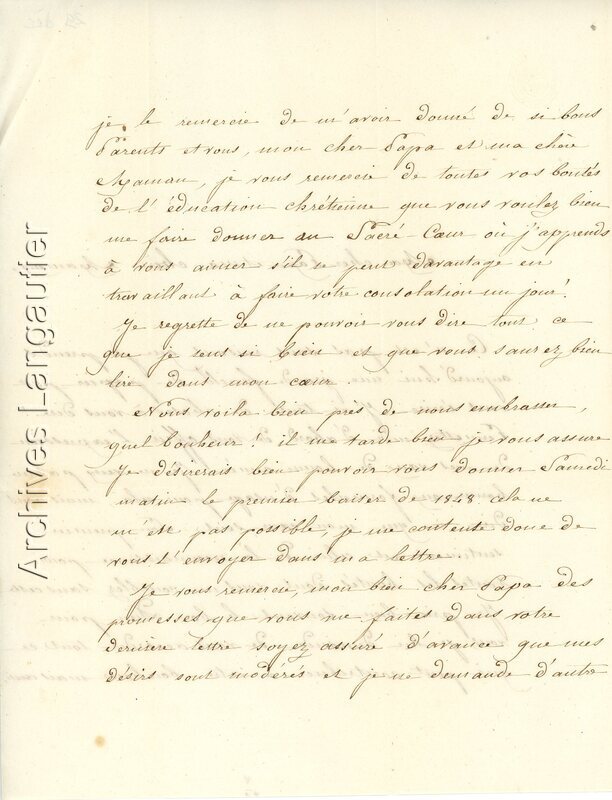 je le remercie de m'avoir donné de si bons
Parents et vous, mon cher Papa et ma chère
Maman, je vous remercie de toutes vos bontés
de l'éducation chrétienne que vous voulez bien
me faire donner au Sacré-Cœur où j'apprends
à vous aimer s'il se peut davantage en
travaillant à faire votre consolation un jour!
Je regrette de ne pouvoir vous dire tout ce
que je sens si bien et que vous saurez bien
lire dans mon cœur.
Nous voila bien près de nous embrasser,
quel bonheur! il me tarde bien je vous assure
Je désirerais bien pouvoir vous donner Samedi
matin le premier baiser de 1848 cela ne
m'est pas possible, je me contente donc de
vous l'envoyer dans ma lettre.
Je vous remercie, mon bien cher Papa des
promesses que vous me faites dans votre
dernière lettre soyez assuré d'avance que mes
désirs sont modérés et je ne demande d'autre
Archives Langautier